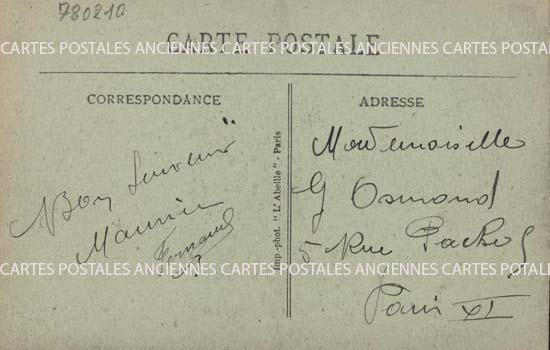 780210
CARTE POSTALE
CARTES POSTALES ANCIENNES CARTES POSTALES ANCIENNES CARTES POSTALES
CORRESPONDANCE
Bon Souvenir
Maurice
Fernand
Imp.-phot. "L'Abeille" - Paris
ADRESSE
Mademoiselle
G Osmond
5 Rue Pache
Paris XI
CARTES POSTALES ANCIENNES CARTES POSTALES ANCIENNES CARTES POSTALES